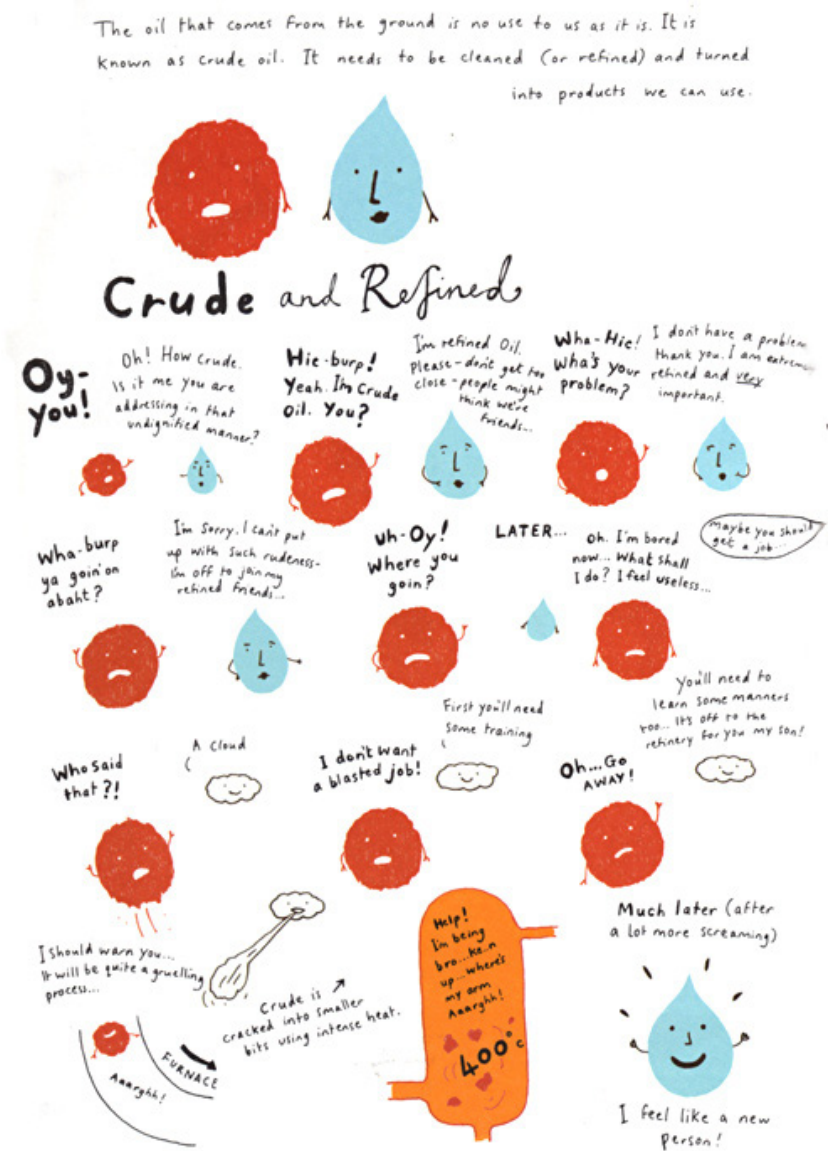 The oil that comes from the ground is no use to us as it is. It is
known as crude oil. It needs to be cleaned (or refined) and turned
into products we can use.
Crude and Refined
Oy-
you!
Oh! How crude.
Is it me you are
addressing in that
undignified manner?
Hic-burp!
Yeah. I'm Crude
Oil. You?
I'm refined Oil.
Please - don't get too
close - people might
think we're
friends...
Wha-Hic!
Wha's your
problem?
I don't have a problem
thank you. I am extrem
refined and very
important.
Wha-burp
ya goin' on
abaht?
I'm sorry. I can't put
up with such rudeness-
I'm off to join my
refined friends...
Uh-Oy!
Where you
goin?
LATER...
Oh. I'm bored
now... What shall
I do? I feel useless...
Maybe you should
get a job...
Who said
that?!
A cloud
I don't want
a blasted job!
First you'll need
some training
Oh...Go
AWAY!
You'll need to
learn some manners
too... It's off to the
refinery for you my son!
I should warn you...
It will be quite a gruelling
process...
Aaarghh!
FURNACE
Crude is
cracked into smaller
bits using intense heat.
Help!
I'm being
bro...ke..n
up...where's
my arm
Aaarghh!
400°c
Much later (after
a lot more screaming)
I feel like a new
person!